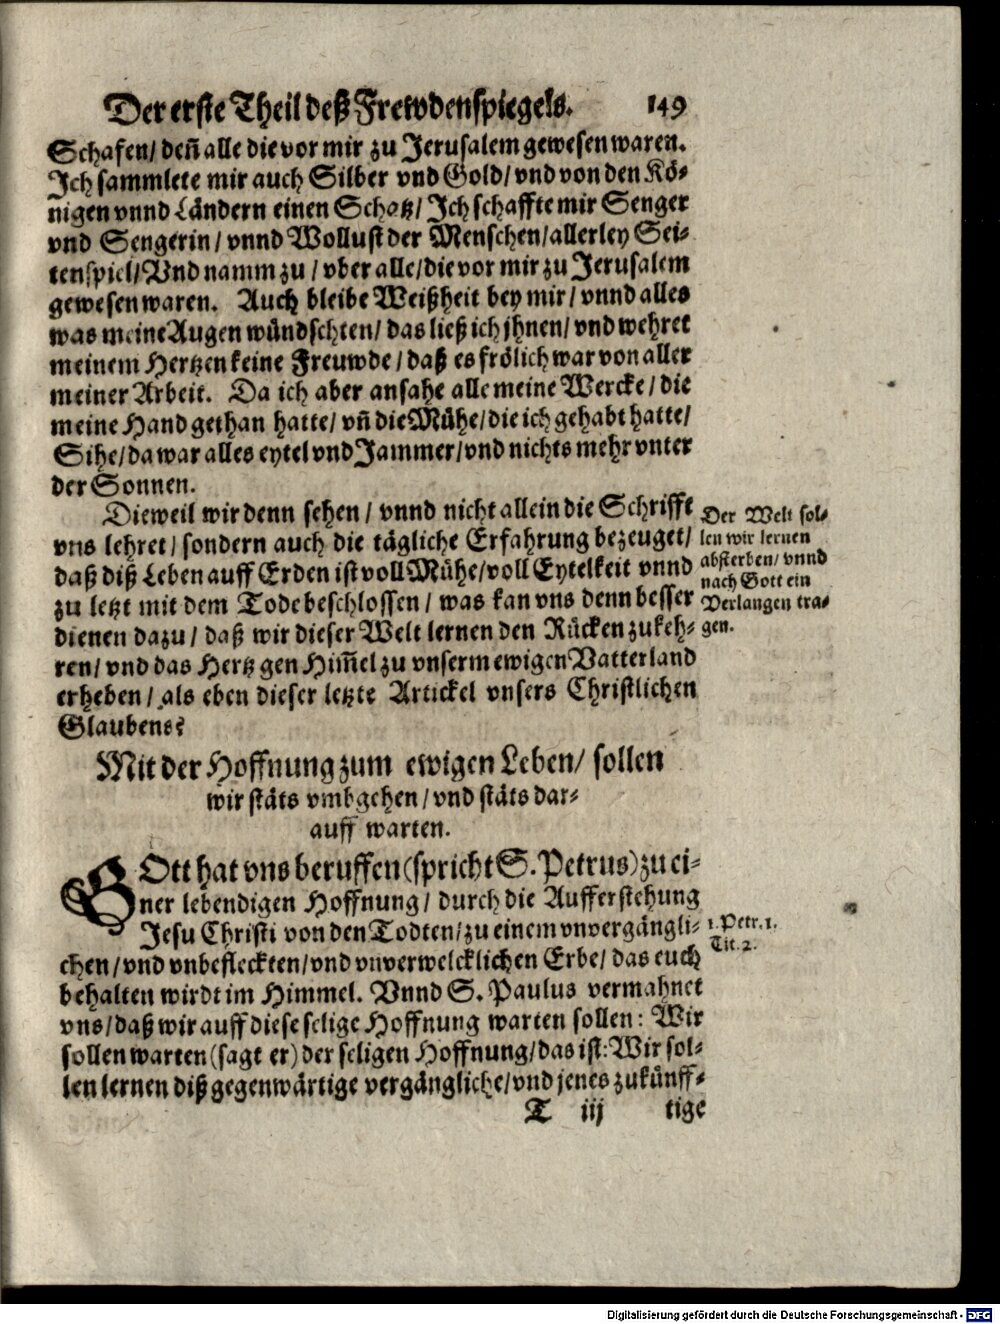 Der erste Theil deß Frewdenspiegels. 149
Schafen/ deñ alle die vor mir zu Jerusalem gewesen waren.
Jch sammlete mir auch Silber vnd Gold/ vnd von den Kö-
nigen vnnd Ländern einen Schatz/ Jch schaffte mir Senger
vnd Sengerin/ vnnd Wollust der Menschen/ allerley Sei-
tenspiel/ Vnd namm zu/ vber alle/ die vor mir zu Jerusalem
gewesen waren. Auch bleibe Weißheit bey mir/ vnnd alles
was meine Augen wündschten/ das ließ ich jhnen/ vnd wehret
meinem Hertzen keine Freuwde/ daß es frölich war von aller
meiner Arbeit. Da ich aber ansahe alle meine Wercke/ die
meine Hand gethan hatte/ vñ die Mühe/ die ich gehabt hatte/
Sihe/ da war alles eytel vnd Jammer/ vnd nichts mehr vnter
der Sonnen.
Dieweil wir denn sehen/ vnnd nicht allein die Schrifft
vns lehret/ sondern auch die tägliche Erfahrung bezeuget/
daß diß Leben auff Erden ist voll Mühe/ voll Eytelkeit vnnd
zu letzt mit dem Tode beschlossen/ was kan vns denn besser
dienen dazu/ daß wir dieser Welt lernen den Rücken zukeh-
ren/ vnd das Hertz gen Him̃el zu vnserm ewigen Vatterland
erheben/ als eben dieser letzte Artickel vnsers Christlichen
Glaubens?
Der Welt sol-
len wir lernen
absterben/ vnnd
nach Gott ein
Verlangen tra-
gen.
Mit der Hoffnung zum ewigen Leben/ sollen
wir stäts vmbgehen/ vnd stäts dar-
auff warten.
GOtt hat vns beruffen (spricht S. Petrus) zu ei-
ner lebendigen Hoffnung/ durch die Aufferstehung
Jesu Christi von den Todten/ zu einem vnvergängli-
chen/ vnd vnbefleckten/ vnd vnverwelcklichen Erbe/ das euch
behalten wirdt im Himmel. Vnnd S. Paulus vermahnet
vns/ daß wir auff diese selige Hoffnung warten sollen: Wir
sollen warten (sagt er) der seligen Hoffnung/ das ist: Wir sol-
len lernen diß gegenwärtige vergängliche/ vnd jenes zukünff-
1. Petr. 1.
Tit. 2.
T iij tige
Digitalisierung gefördert durch die Deutsche Forschungsgemeinschaft - DFG